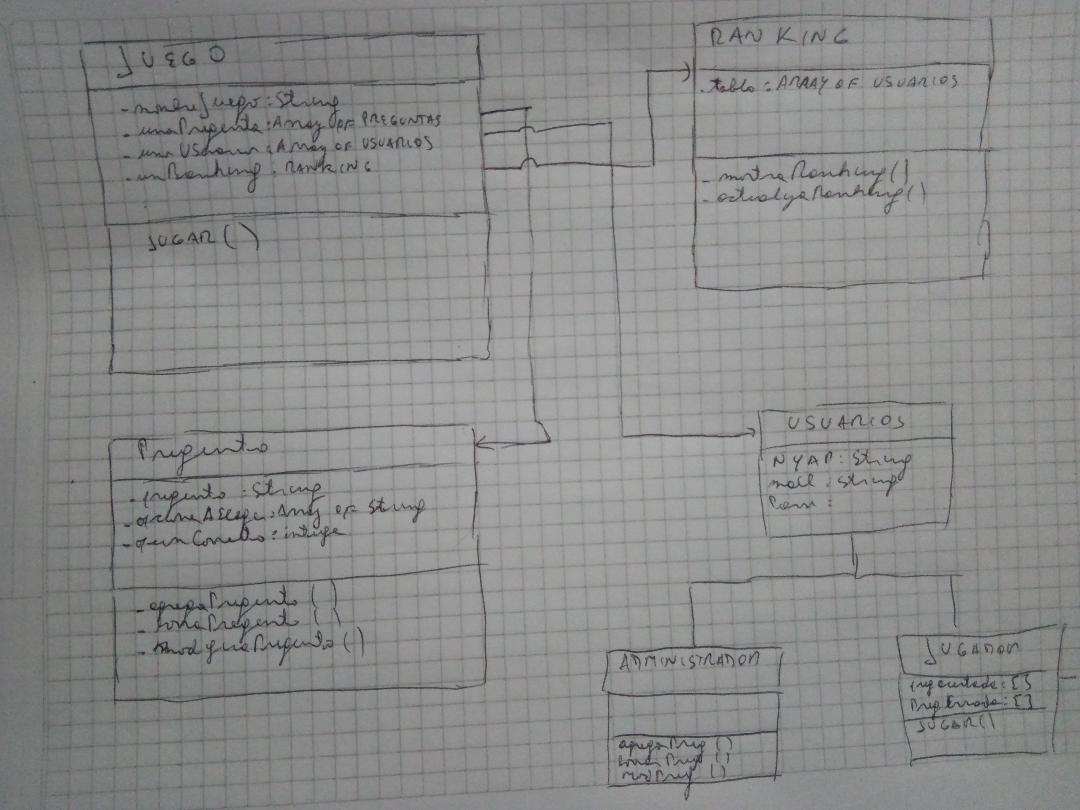 JUEGO
- nombreJuego : String
- unaPregunta : Array OF PREGUNTAS
- unUsuario : Array OF USUARIOS
- unRanking : RANKING
JUGAR ( )
RANKING
- tabla : ARRAY OF USUARIOS
- mostrarRanking ( )
- actualizaRanking ( )
Pregunta
- pregunta : String
- opcionesAElegir : Array OF String
- opcionCorrecta : integer
- agregaPregunta ( )
- borraPregunta ( )
- modificaPregunta ( )
USUARIOS
NYAP : String
mail : String
ADMINISTRADOR
agregaPreg ( )
borraPreg ( )
modPreg ( )
JUGADOR
PregErrada : [ ]
JUGAR ( )